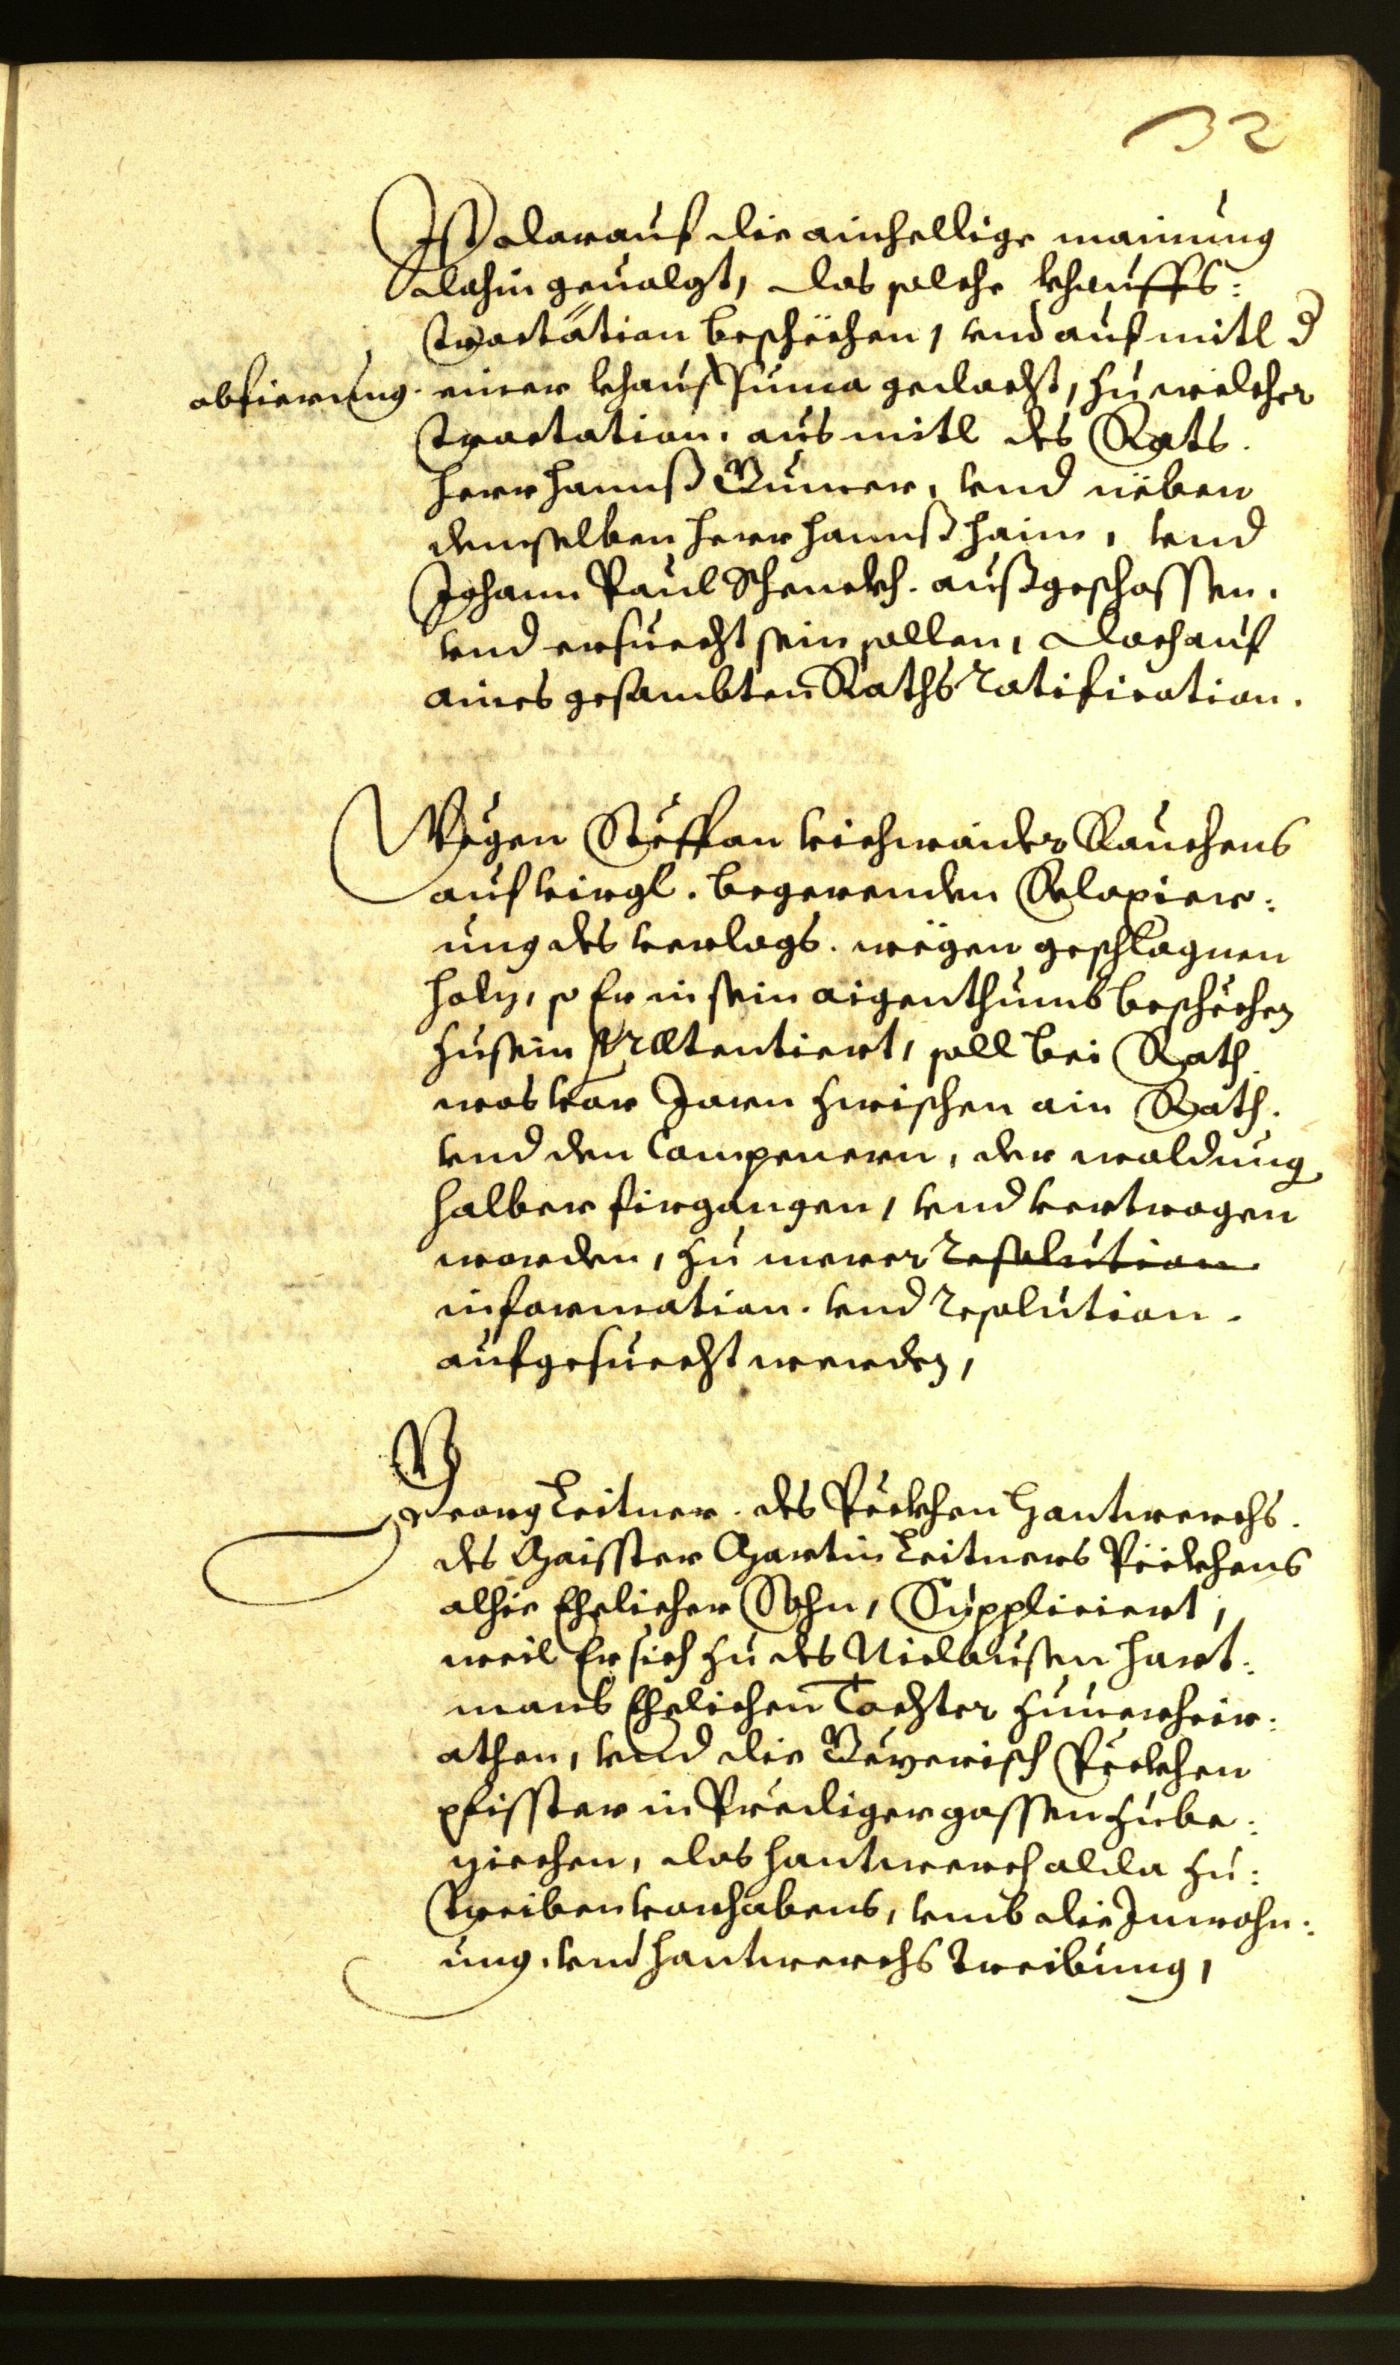 32
Ist darauf die ainhellige mainung
dahin geuolgt, das solche khauffs:
tractation beschechen, vnd auf mitl d
abfierung. einer khauf Suma gedacht, zu welcher
tractation. aus mitl des Rats.
Herr Hannß Gumer, vnd neben
demselben Herr Hannß Haim, vnd
Johann Paul Schenckh. außgeschossen.
vnd ersuecht sein sollen, doch auf
aines gesambten Raths ratification.
Wegen Steffan viehwaider Rauchens
auf virgl. begerenden Relaxier:
ung des verlags. wegen geschlagnen
holz, so Er in sein aigenthumb beschechen
zu sein prætentiert, soll bei Rath
was vor Jarn zwischen ain Rath.
vnd den Campenern, der waldung
halber fürgangen, vnd vertragen
worden, zu merer resolution
information. vnd resolution.
aufgesuecht werden,
Georg Leitner. des Peckhen Hantwerchs.
des Maister Martin Leitners Peckhens
alhie Ehelicher Sohn, Suppliciert,
weil Er sich zu des Niclausen Hart:
mans Ehelichen Tochter zuuerheir:
athen, vnd die Beyerisch Peckhen
pfisster in Predigergassen zube:
ziechen, das hantwerch alda zu:
treiben vorhabens, vmb die Inwohn:
ung. vnd hantwerchs treibung,